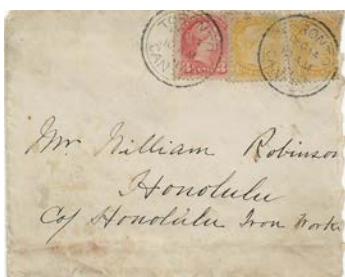 TORONTO
CANADA
Mr. William Robinson
Honolulu
C/o Honolulu Iron Works